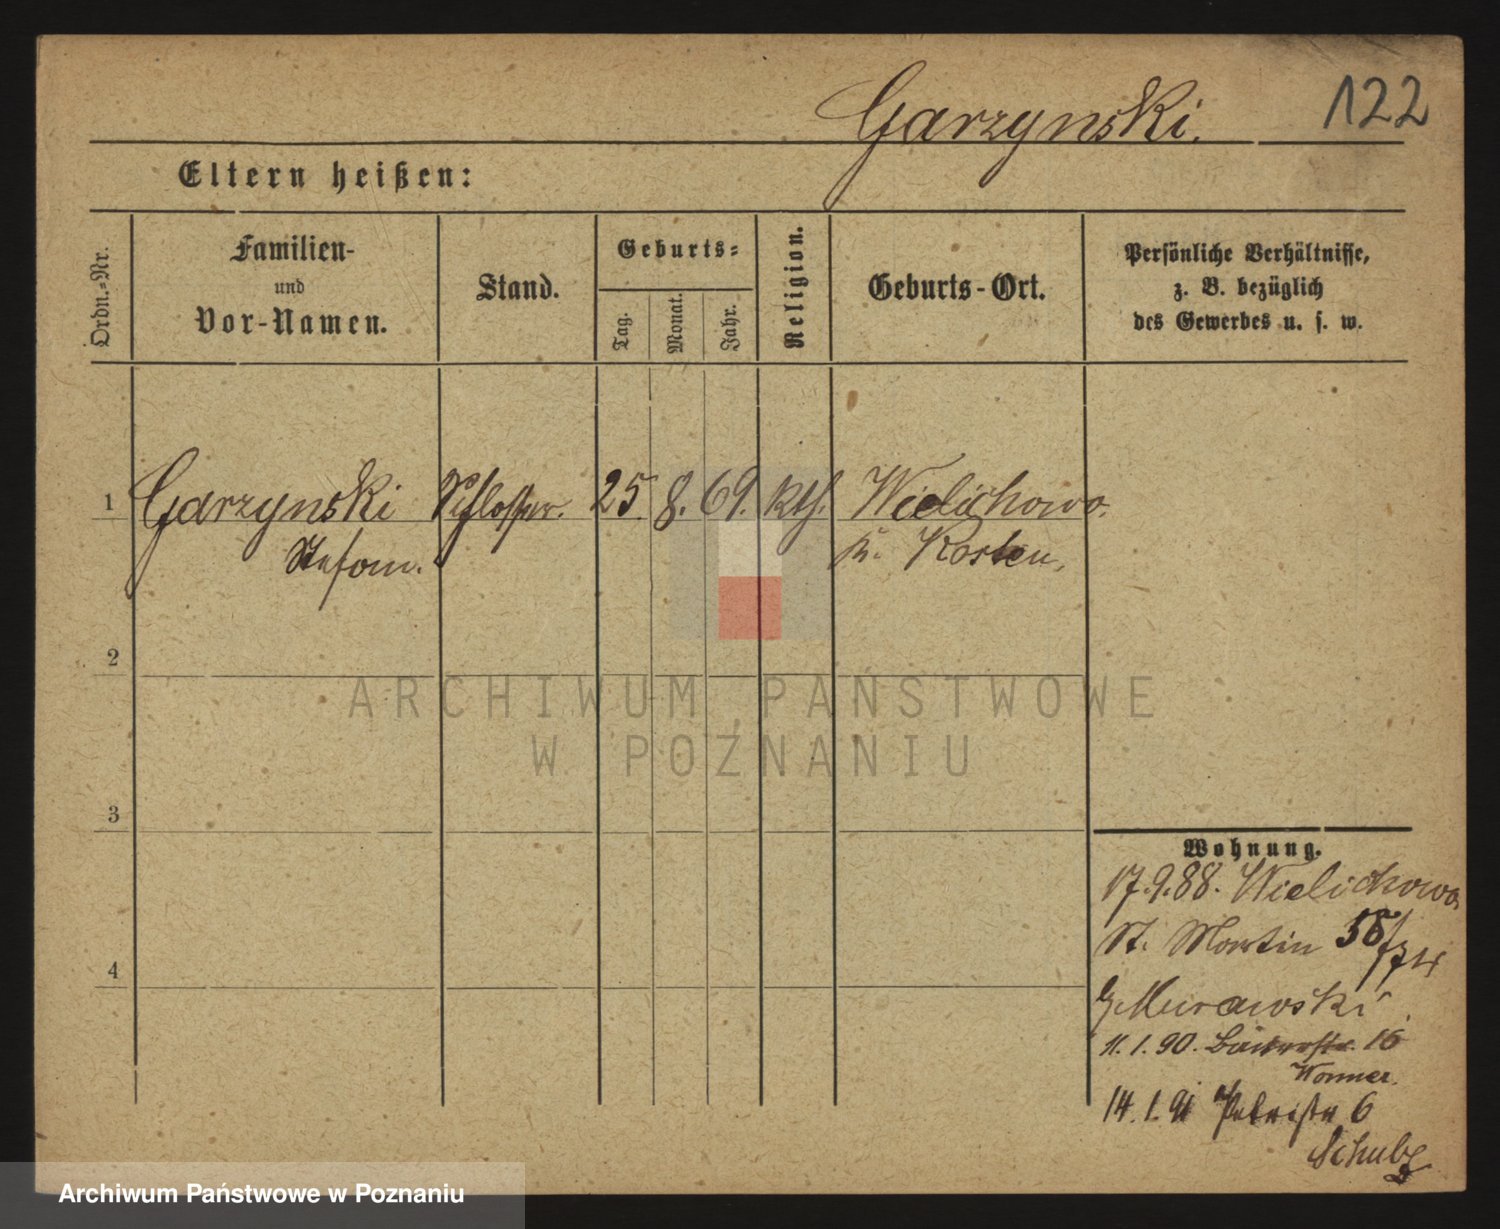 Garzynski.
122
Eltern heißen:
Ordn.-Nr.
Familien-
und
Vor-Namen.
Stand.
Geburts-
Tag.
Monat.
Jahr.
Religion.
Geburts-Ort.
Persönliche Verhältnisse,
z. B. bezüglich
des Gewerbes u. s. w.
1 Garzynski Schlosser. 25. 8. 69. kth. Wielichowo.
Stefan. K. Kosten,
2
3
4
ARCHIWUM PAŃSTWOWE
W POZNANIU
Wohnung.
17.9.88. Wielichowo
St. Martin 58/
Murawski
11.1.90. Bäckerstr. 16
14.1.91 Petristr 6
Schulz
Archiwum Państwowe w Poznaniu